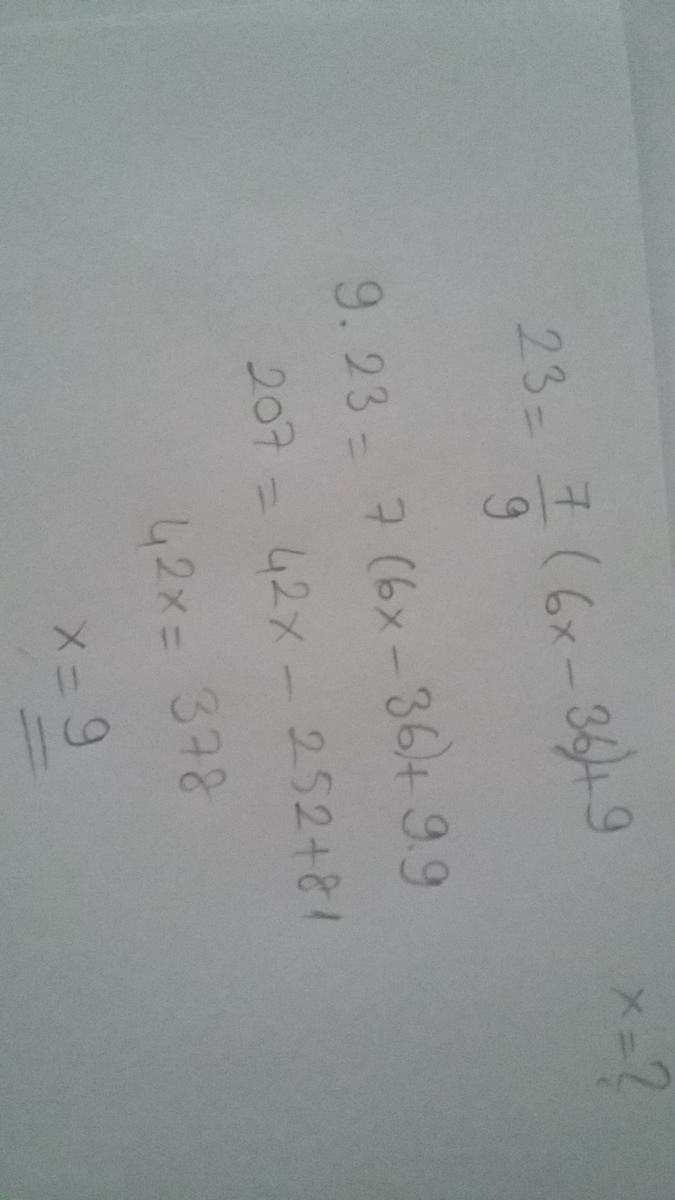 x = ?
23 = 7/9 (6x - 36) + 9
9.23 = 7 (6x - 36) + 9.9
207 = 42x - 252 + 81
42x = 378
x = 9